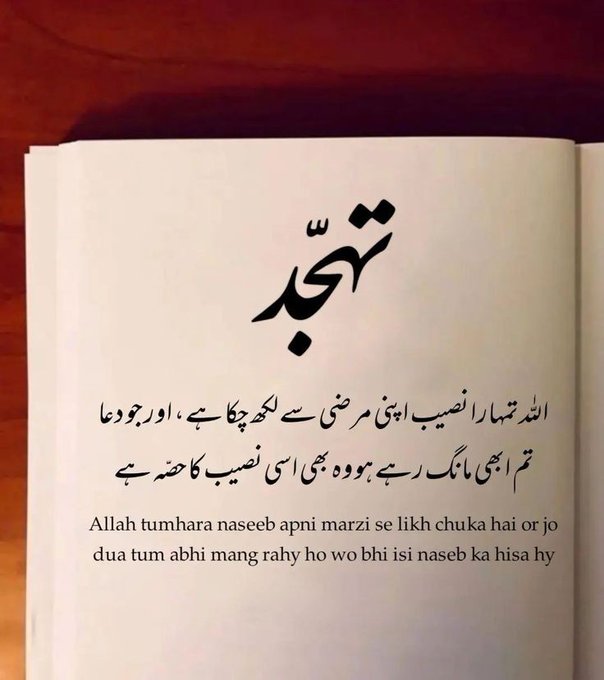 تہجّد
اللہ تمہارا نصیب اپنی مرضی سے لکھ چکا ہے ، اور جو دعا
تم ابھی مانگ رہے ہو وہ بھی اسی نصیب کا حصّہ ہے
Allah tumhara naseeb apni marzi se likh chuka hai or jo
dua tum abhi mang rahy ho wo bhi isi naseb ka hisa hy